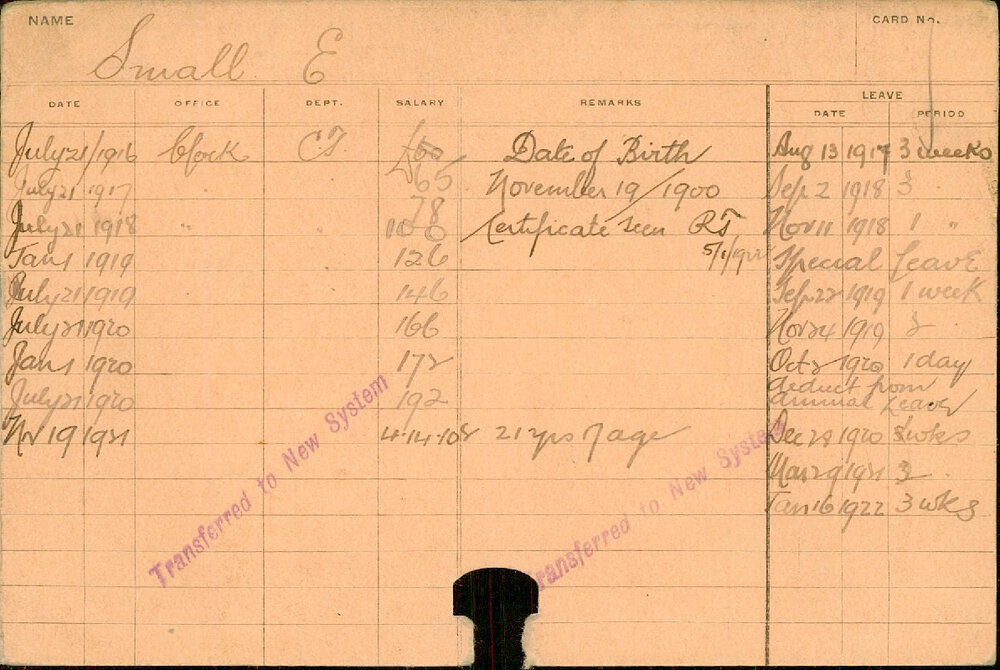 NAME
CARD No.
Small E
DATE OFFICE DEPT. SALARY REMARKS LEAVE
DATE PERIOD
July 21/1916 Clock CT £50 Date of Birth Aug 13 1917 3 weeks
July 21 1917 65 November 19/1900 Sep 2 1918 3
78
July 21 1918 " " 100 Certificate seen RT Nov 11 1918 1 "
5/1/1922
Jan 1 1919 126 Special Leave
July 21 1919 146 Sep 22 1919 1 week
July 21 1920 166 Nov 24 1919 2
Jan 1 1920 172 Oct 2 1920 1 day
deduct from
July 21 1920 192 annual Leave
Nv 19 1921 4-14-10 21 yrs of age Dec 29 1920 wks
Mar 29 1921 2
Jan 16 1922 3 wks
Transferred to New System
Transferred to New System